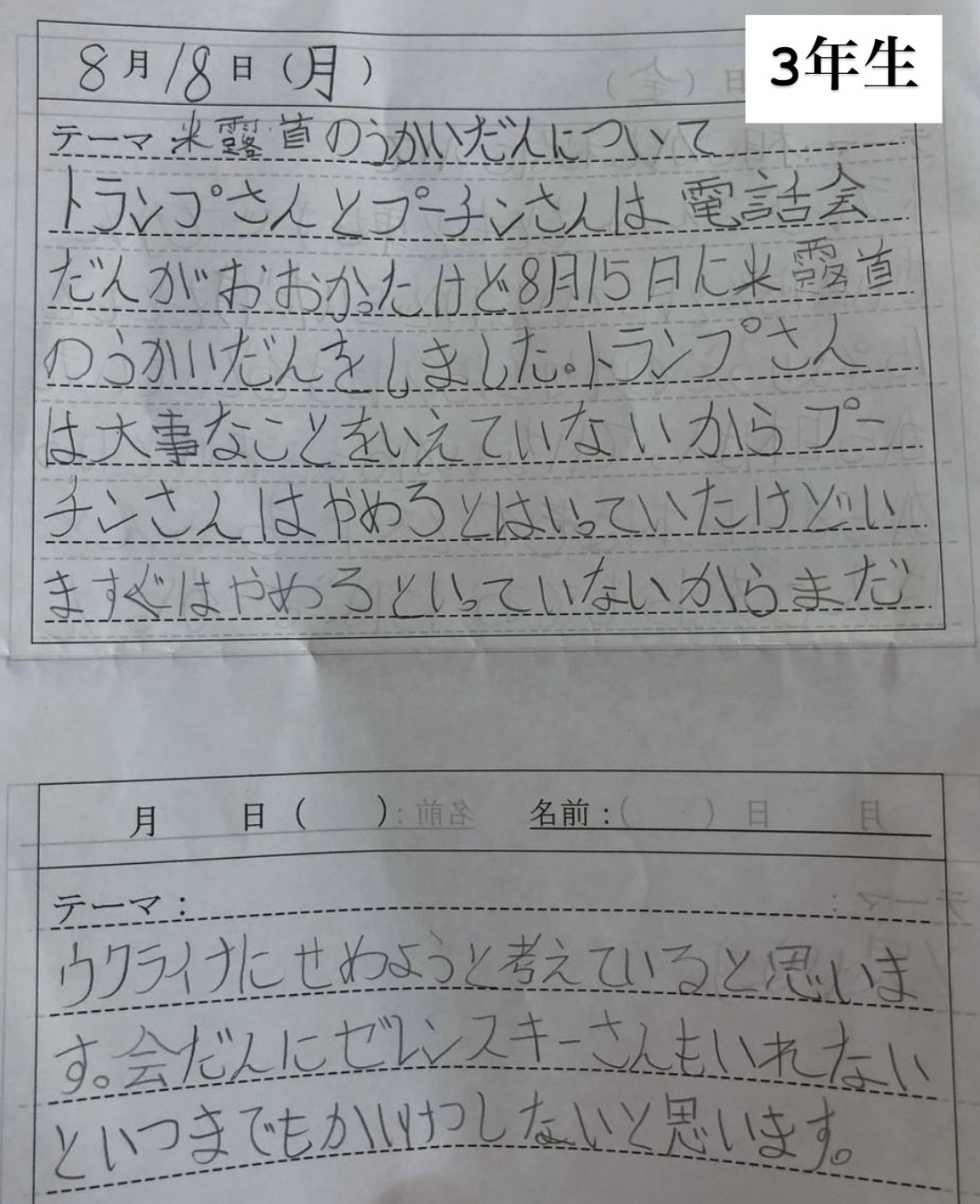 3年生
8月18日(月)
テーマ 米露首のうかいだんについて
トランプさんとプーチンさんは電話会
だんがおおかったけど8月15日に米露首
のうかいだんをしました。トランプさん
は大事なことをいえていないからプー
チンさんはやめろとはいっていたけどい
ますぐはやめろといっていないからまだ
月 日( ) 名前:
テーマ:
ウクライナにせめようと考えていると思いま
す。会だんにゼレンスキーさんもいれない
といつまでもかいけつしないと思います。